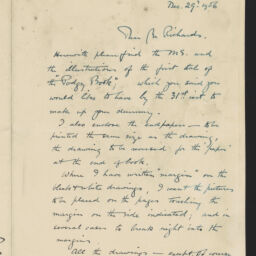 Dec. 29th 1906
Dear Mr Richards.
Herewith please find the MS. and
the illustrations of the first tale of
the "Podgy Book", which you said you
would like to have by the 31st inst. to
make up your dummy.
I also enclose the endpapers — to be
printed the same size as the drawing,
the drawing to be reversed for the paper
at the end of book.
Where I have written "margin" on the
black & white drawings, I want the pictures
to be placed on the pages touching the
margins on the side indicated, and in
several cases to break right into the
margins.
All the drawings — except of course